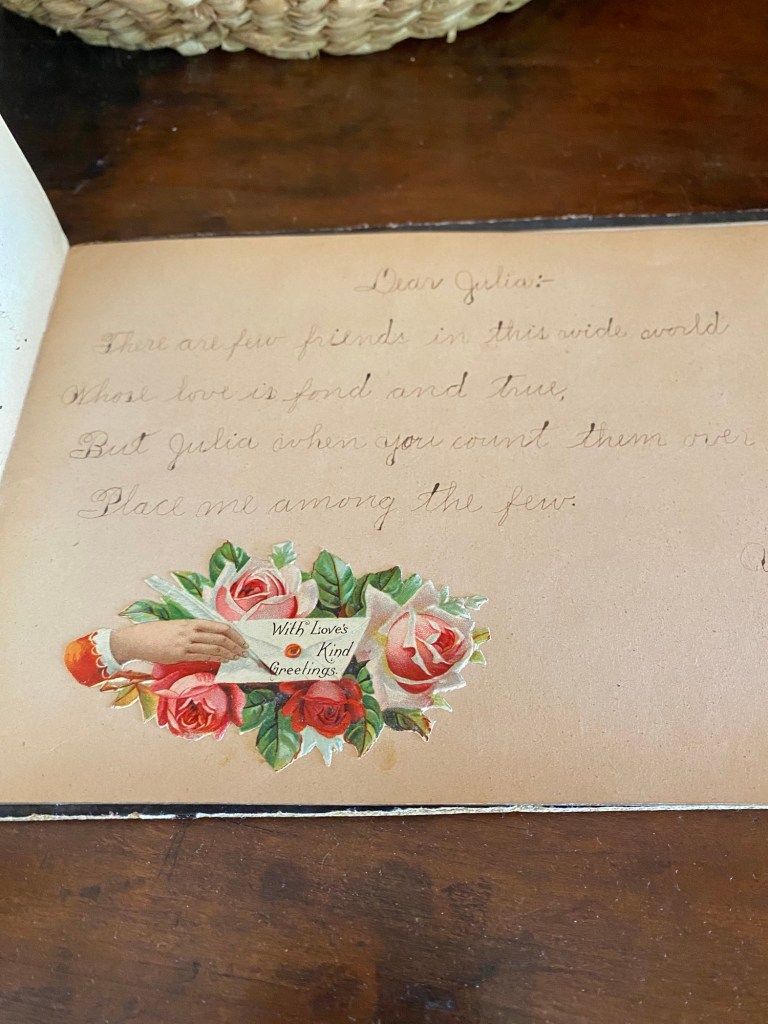 Dear Julia:-
There are few friends in this wide world
Whose love is fond and true,
But Julia when you count them over
Place me among the few.
With Love's
Kind
Greetings.